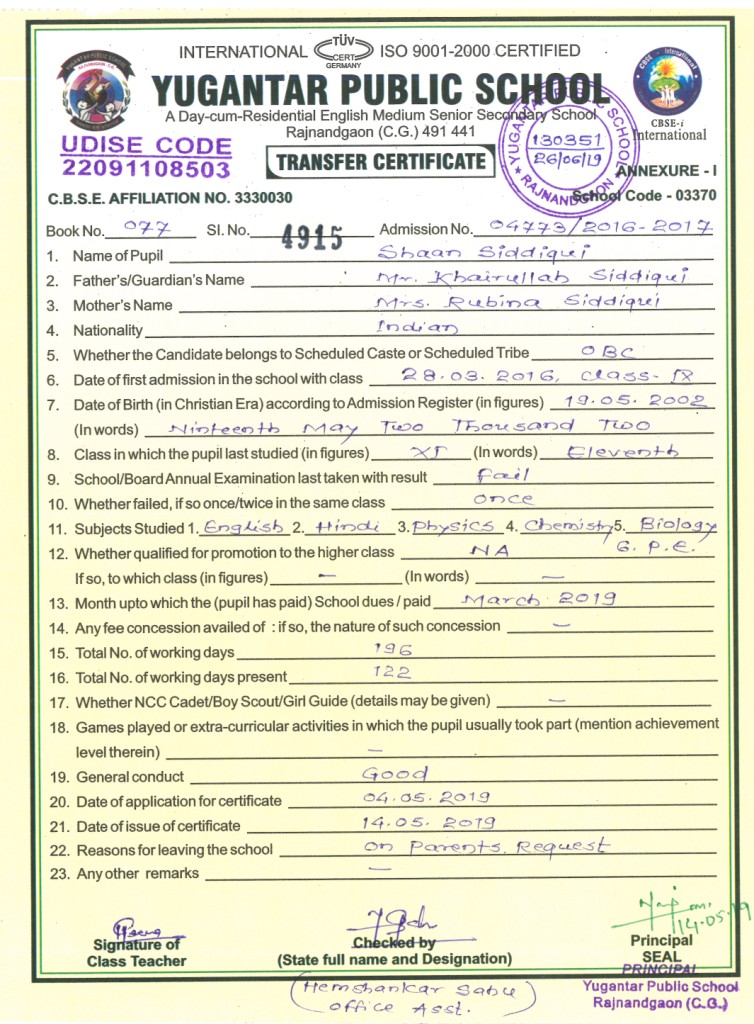 INTERNATIONAL TÜV CERT GERMANY ISO 9001-2000 CERTIFIED
YUGANTAR PUBLIC SCHOOL
A Day-cum-Residential English Medium Senior Secondary School
Rajnandgaon (C.G.) 491 441
CBSE-i
International
UDISE CODE
22091108503
TRANSFER CERTIFICATE
YUGANTAR PUBLIC SCHOOL
130351
26/06/19
★ RAJNANDGAON ★
ANNEXURE - I
C.B.S.E. AFFILIATION NO. 3330030
School Code - 03370
Book No. 077 Sl. No. 4915 Admission No. 04773/2016-2017
1. Name of Pupil Shaan Siddiqui
2. Father's/Guardian's Name Mr. Khairullah Siddiqui
3. Mother's Name Mrs. Rubina Siddiqui
4. Nationality Indian
5. Whether the Candidate belongs to Scheduled Caste or Scheduled Tribe OBC
6. Date of first admission in the school with class 28.03.2016, Class-IX
7. Date of Birth (in Christian Era) according to Admission Register (in figures) 19.05.2002
(In words) Ninteenth May Two Thousand Two
8. Class in which the pupil last studied (in figures) XI (In words) Eleventh
9. School/Board Annual Examination last taken with result Fail
10. Whether failed, if so once/twice in the same class Once
11. Subjects Studied 1. English 2. Hindi 3. Physics 4. Chemistry 5. Biology
6. P.E.
12. Whether qualified for promotion to the higher class NA
If so, to which class (in figures) — (In words) —
13. Month upto which the (pupil has paid) School dues / paid March 2019
14. Any fee concession availed of : if so, the nature of such concession —
15. Total No. of working days 196
16. Total No. of working days present 122
17. Whether NCC Cadet/Boy Scout/Girl Guide (details may be given) —
18. Games played or extra-curricular activities in which the pupil usually took part (mention achievement
level therein) —
19. General conduct Good
20. Date of application for certificate 04.05.2019
21. Date of issue of certificate 14.05.2019
22. Reasons for leaving the school On Parents Request
23. Any other remarks —
14-05-19
Signature of
Class Teacher
Checked by
(State full name and Designation)
Principal
SEAL
(Hemshankar Sahu)
Office Asst.
PRINCIPAL
Yugantar Public School
Rajnandgaon (C.G.)